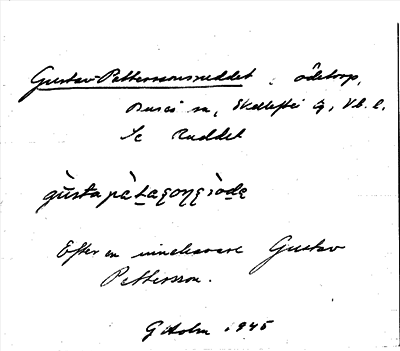 Gustav-Petterssonruddet, ödetorp,
Bureå sn, Skellefteå tg, Vb. l.
Se Ruddet
gùstapàtaʂonʂròdə
Efter en innehavare Gustav
Pettersson.
G Holm 1945